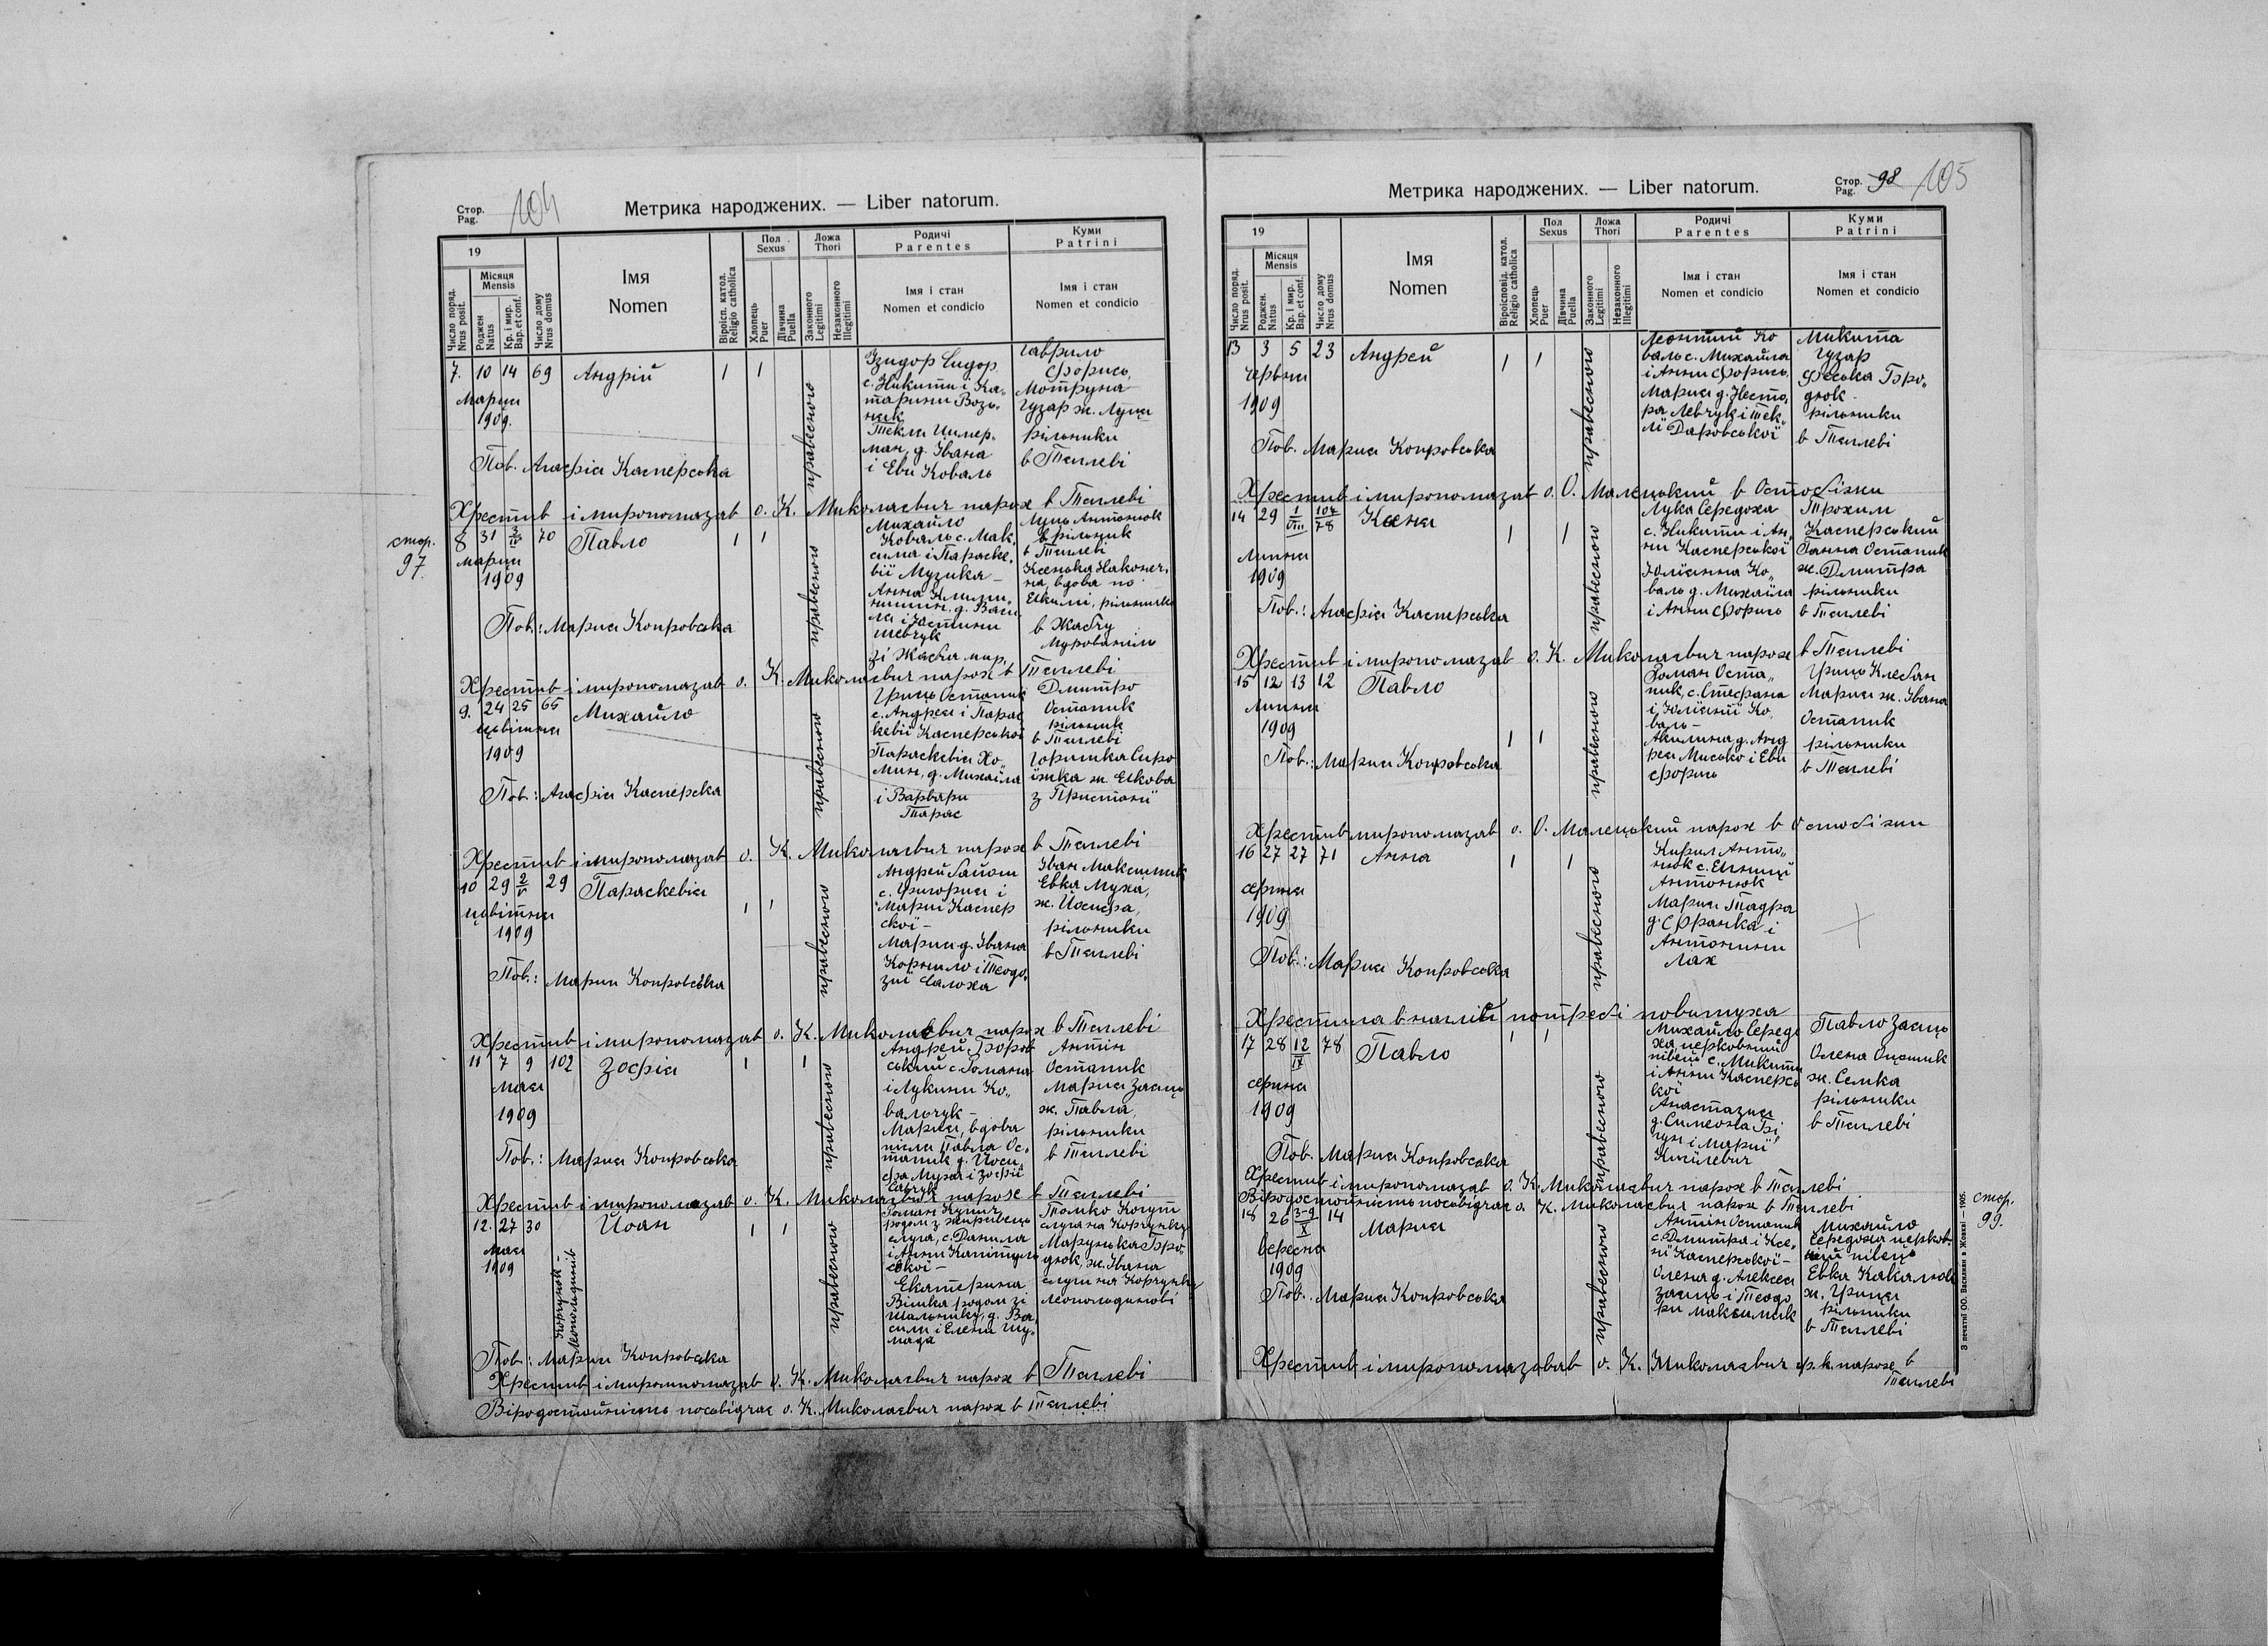 Стор.
Pag.
104
Метрика народжених. — Liber natorum.
19
Місяця
Mensis
Число поряд.
Nrus posit.
Роджен
Natus
Кр. і мир.
Bap. et conf.
Число дому
Nrus domus
Імя
Nomen
Віроісп. катол.
Religio catholica
Пол
Sexus
Хлопець
Puer
Дівчина
Puella
Ложа
Thori
Законного
Legitimi
Незаконного
Illegitimi
Родичі
Parentes
Імя і стан
Nomen et condicio
Куми
Patrini
Імя і стан
Nomen et condicio
7. 10 14 69 Андрій 1 1
марця
1909.
правесного
Ізидор Сидор
с. Никити і Ка„
тарини Возь„
няк
Текля
ман, д. Івана
і Еви Коваль
Гаврило
Форись,
Мотруна
Гузар ж. Луця
рільники
в Теглеві
Пов. Агафія Касперська
Хрестив і миропомазав о. К. Миколаєвич парох в Теглеві
стор.
97.
8 31 3/IV 70 Павло 1 1
марця
1909
правесного
Михайло
Коваль с. Мак„
сима і Параске„
вії Музика –
Анна
д. Васи
ля і Юстини
Шевчук
зі Жабча мур.
Луць Антонюк
рільник
в Теглеві
Ксенька
вдова по
рільники
в Жабчу
Мурованім
Пов.: Мария Копровська
Хрестив і миропомазав о. К. Миколаєвич парох в Теглеві
9. 24 25 65 Михайло
цьвітня
1909
правесного
Гриць Остапик
с. Андрея і Парас
кевії Касперської
Параскевія Хо„
мин, д. Михайла
і Варвари
Тарас
Дмитро
Остапик
рільник
в Теглеві
Горпинка Сиро
їжка ж. Якова
з Пристані
Пов.: Агафія Касперска
Хрестив і миропомазав о. К. Миколаєвич парох в Теглеві
10 29 2/V 29 Параскевія 1 1
цьвітня
1909
правесного
Андрей Гайош
с. Григория і
Марії Каспер
скої –
Мария д. Івана
Корнило і Теодо„
зиї Салоха
Іван Максимик
Евка Муха,
ж. Йосифа,
рільники
в Теглеві
Пов.: Мария Копровська
Хрестив і миропомазав о. К. Миколаєвич парох в Теглеві
11 7 9 102 Зофія 1 1
мая
1909
правесного
Андрей Боров
ський с. Романа
і Лукини Ко„
вальчук –
Мария, вдова
після Павла Ос„
тапик д. Йоси
фа Муха і Зофії
Савчук
Антін
Остапик
Мария Заяць
ж. Павла,
рільники
в Теглеві
Пов.: Мария Копровська
Хрестив і миропомазав о. К. Миколаєвич парох в Теглеві
12. 27 30 Йоан 1 1
мая
1909
Корчунок –
Леопольдинів
правесного
Роман Кушнір
родом з
слуга, с. Данила
і Анни
ської –
Екатерина
Вішка родом зі
д. Ва„
силя і Елени Шу„
мада
Томко Когут
слуга на Корчунку
Марунька Бро„
дюк, ж. Івана
слуги на Корчунку
леопольдинові
Пов.: Мария Копровська
Хрестив і миропомазав о. К. Миколаєвич парох в Теглеві
Вірodостойність посьвідчає о. К. Миколаєвич парох в Теглеві
Метрика народжених. — Liber natorum.
Стор.
Pag.
98
105
19
Місяця
Mensis
Число поряд.
Nrus posit.
Роджен.
Natus
Кр. і мир.
Bap. et conf.
Число дому
Nrus domus
Імя
Nomen
Віроісповід. катол.
Religio catholica
Пол
Sexus
Хлопець
Puer
Дівчина
Puella
Ложа
Thori
Законного
Legitimi
Незаконного
Illegitimi
Родичі
Parentes
Імя і стан
Nomen et condicio
Куми
Patrini
Імя і стан
Nomen et condicio
13 3 5 23 Андрей 1 1
червня
1909
правесного
Леонтий Ко
валь с. Михайла
і Анни Форись.
Мария д. Несто„
ра Левчук і Тек„
лї Даровської
Микита
Гузар
Феська Бро„
дюк
рільники
в Теглеві
Пов. Мария Копровська
Хрестив і миропомазав о. О. Малецький в Остобіжи
14 29 1/VIII 104/78 Ксеня 1 1
липня
1909
правесного
Лука Середоха
с. Никити і Ан„
ни Касперської
Юлїанна Ко„
валь д. Михайла
і Анни Форись
Трохим
Касперський
Панна Остапик
ж. Дмитра
рільники
в Теглеві
Пов.: Агафія Касперська
Хрестив і миропомазав о. К. Миколаєвич парох в Теглеві
15 12 13 12 Павло 1 1
липня
1909
правесного
Роман Оста„
пик, с. Стефана
і Юлїанії Ко„
валь –
Акилина д. Анд
рея Мисько і Еви
Форись
Гриць Клебан
Мария ж. Івана
Остапик
рільники
в Теглеві
Пов.: Мария Копровська
Хрестив миропомазав о. О. Малецький парох в Остобіжи
16 27 27 71 Анна 1 1
серпня
1909
правесного
Кирил Анто„
нюк с.
Антонюк
Мария Тадра
д. Франка і
Антонини
Лах
Пов.: Мария Копровська
Хрестила в наглій потребі повитуха
17 28 12/IX 78 Павло 1 1
серпня
1909
правесного
Михайло Середо
ха церковний
півець с. Микити
і Анни Касперсь
кої
Анастазия
д. Симеона
і Марії
Павло Заяць
Олена Остапик
ж. Семка
рільники
в Теглеві
Пов. Мария Копровська
Хрестив і миропомазав о. К. Миколаєвич парох в Теглеві
Вірoдостойність посьвідчає о. К. Миколаєвич парох в Теглеві
18 26 3-9/X 14 Мария
вересня
1909
правесного
Антін Остапик
с. Дмитра і Ксе„
нї Касперської –
Олена д. Алексея
Заяць і Теодо
ри Максимик
Михайло
Середоха церков„
ний півець
Евка
ж. Гриця
рільники
в Теглеві
Пов. Мария Копровська
Хрестив і миропомазовав о. К. Миколаєвич гр. к. парох в
Теглеві
стор.
99.
З печатнї ОО. Василиян в Жовкві — 1905.